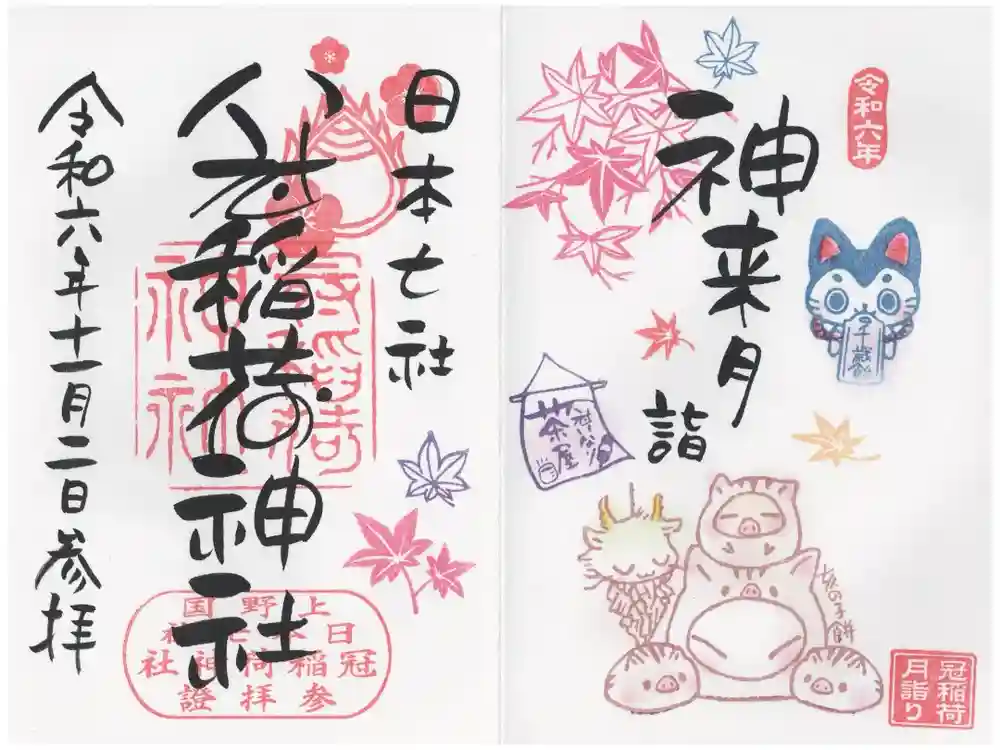 令和六年
神来月
詣
千歳
冠いなり
茶屋
亥の子餅
冠稲荷
月詣り
日本七社
冠稲荷神社
令和六年十一月二日参拝
上野国
日本七社
冠稲荷神社
参拝證